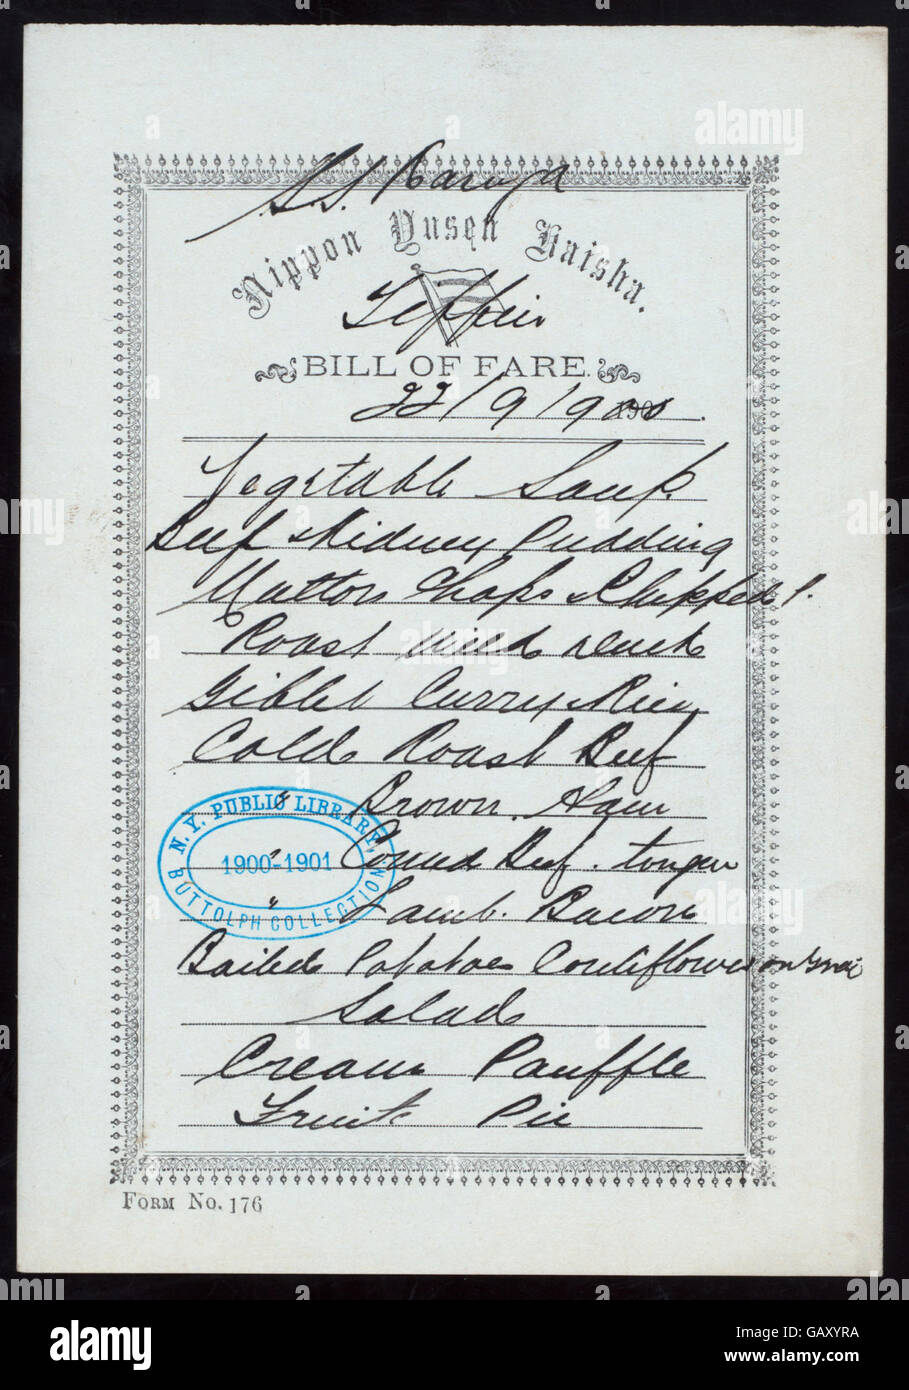 S.S.
Nippon Yusen Kaisha.
Teffin
BILL OF FARE.
22/9/900.
Vegetable Soup.
Beef & Kidney Pudding
Mutton Chops & Chipped P.
Roast wild duck
Giblet Curry & Rice
Cold Roast Beef
" Brown Ham
" Corned Beef. tongue
" Lamb. Bacon
Boiled Potatoes Couliflower
Salad
Cream Pauffle
Fruit Pie
N.Y. PUBLIC LIBRARY,
1900-1901
BUTTOLPH COLLECTION
FORM NO. 176
alamy stock photo
alamy
Image ID: GAXYRA
www.alamy.com